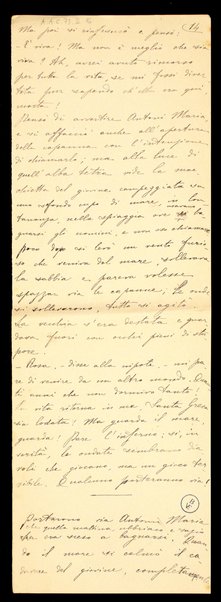 Ma poi si rinfrescò e pensò: 14
- È viva! Ma non è meglio che sia
viva? Ah, avrei avuto rimorso
per tutta la vita, se mi fossi diver
tita pur sapendo ch'ella era qui,
morta!
Pensò di avvertire Antoni Maria,
e si affacciò anche all'apertura
della capanna con l'intenzione
di chiamarlo; ma alla luce di
quell'alba tetra vide la mac
chietta del giovine campeggiare su
uno sfondo cupo di mare, in lon
tananza, nella spiaggia ove
gnarsi gli uomini, e non osò chiamare
poco dopo si levò un vento furio
so che veniva dal mare, sollevava
la sabbia e pareva volesse
spazzar via le capanne; le onde
si sollevarono, tutto si agitò.
La vecchia s'era destata e guar
dava fuori con occhi pieni di stu
pore.
- Rosa, - disse alla nipote, - mi pa
re di venire da un altro mondo. Quan
ti anni che non dormivo tanto!
la vita ritorna in me. Santa Greca
sia lodata! Ma guarda il mare,
guarda! Pare l'inferno; sì, in
verità, le ondate sembrano dia
voli che giocano, ma un gioco ter
ribile. Qualcuno porteranno via!
6
Portarono via Antoni Maria
che quella mattina ubbriaco
era sceso a bagnarsi. Quan
do il mare si calmò il ca
davere del giovine, completamente